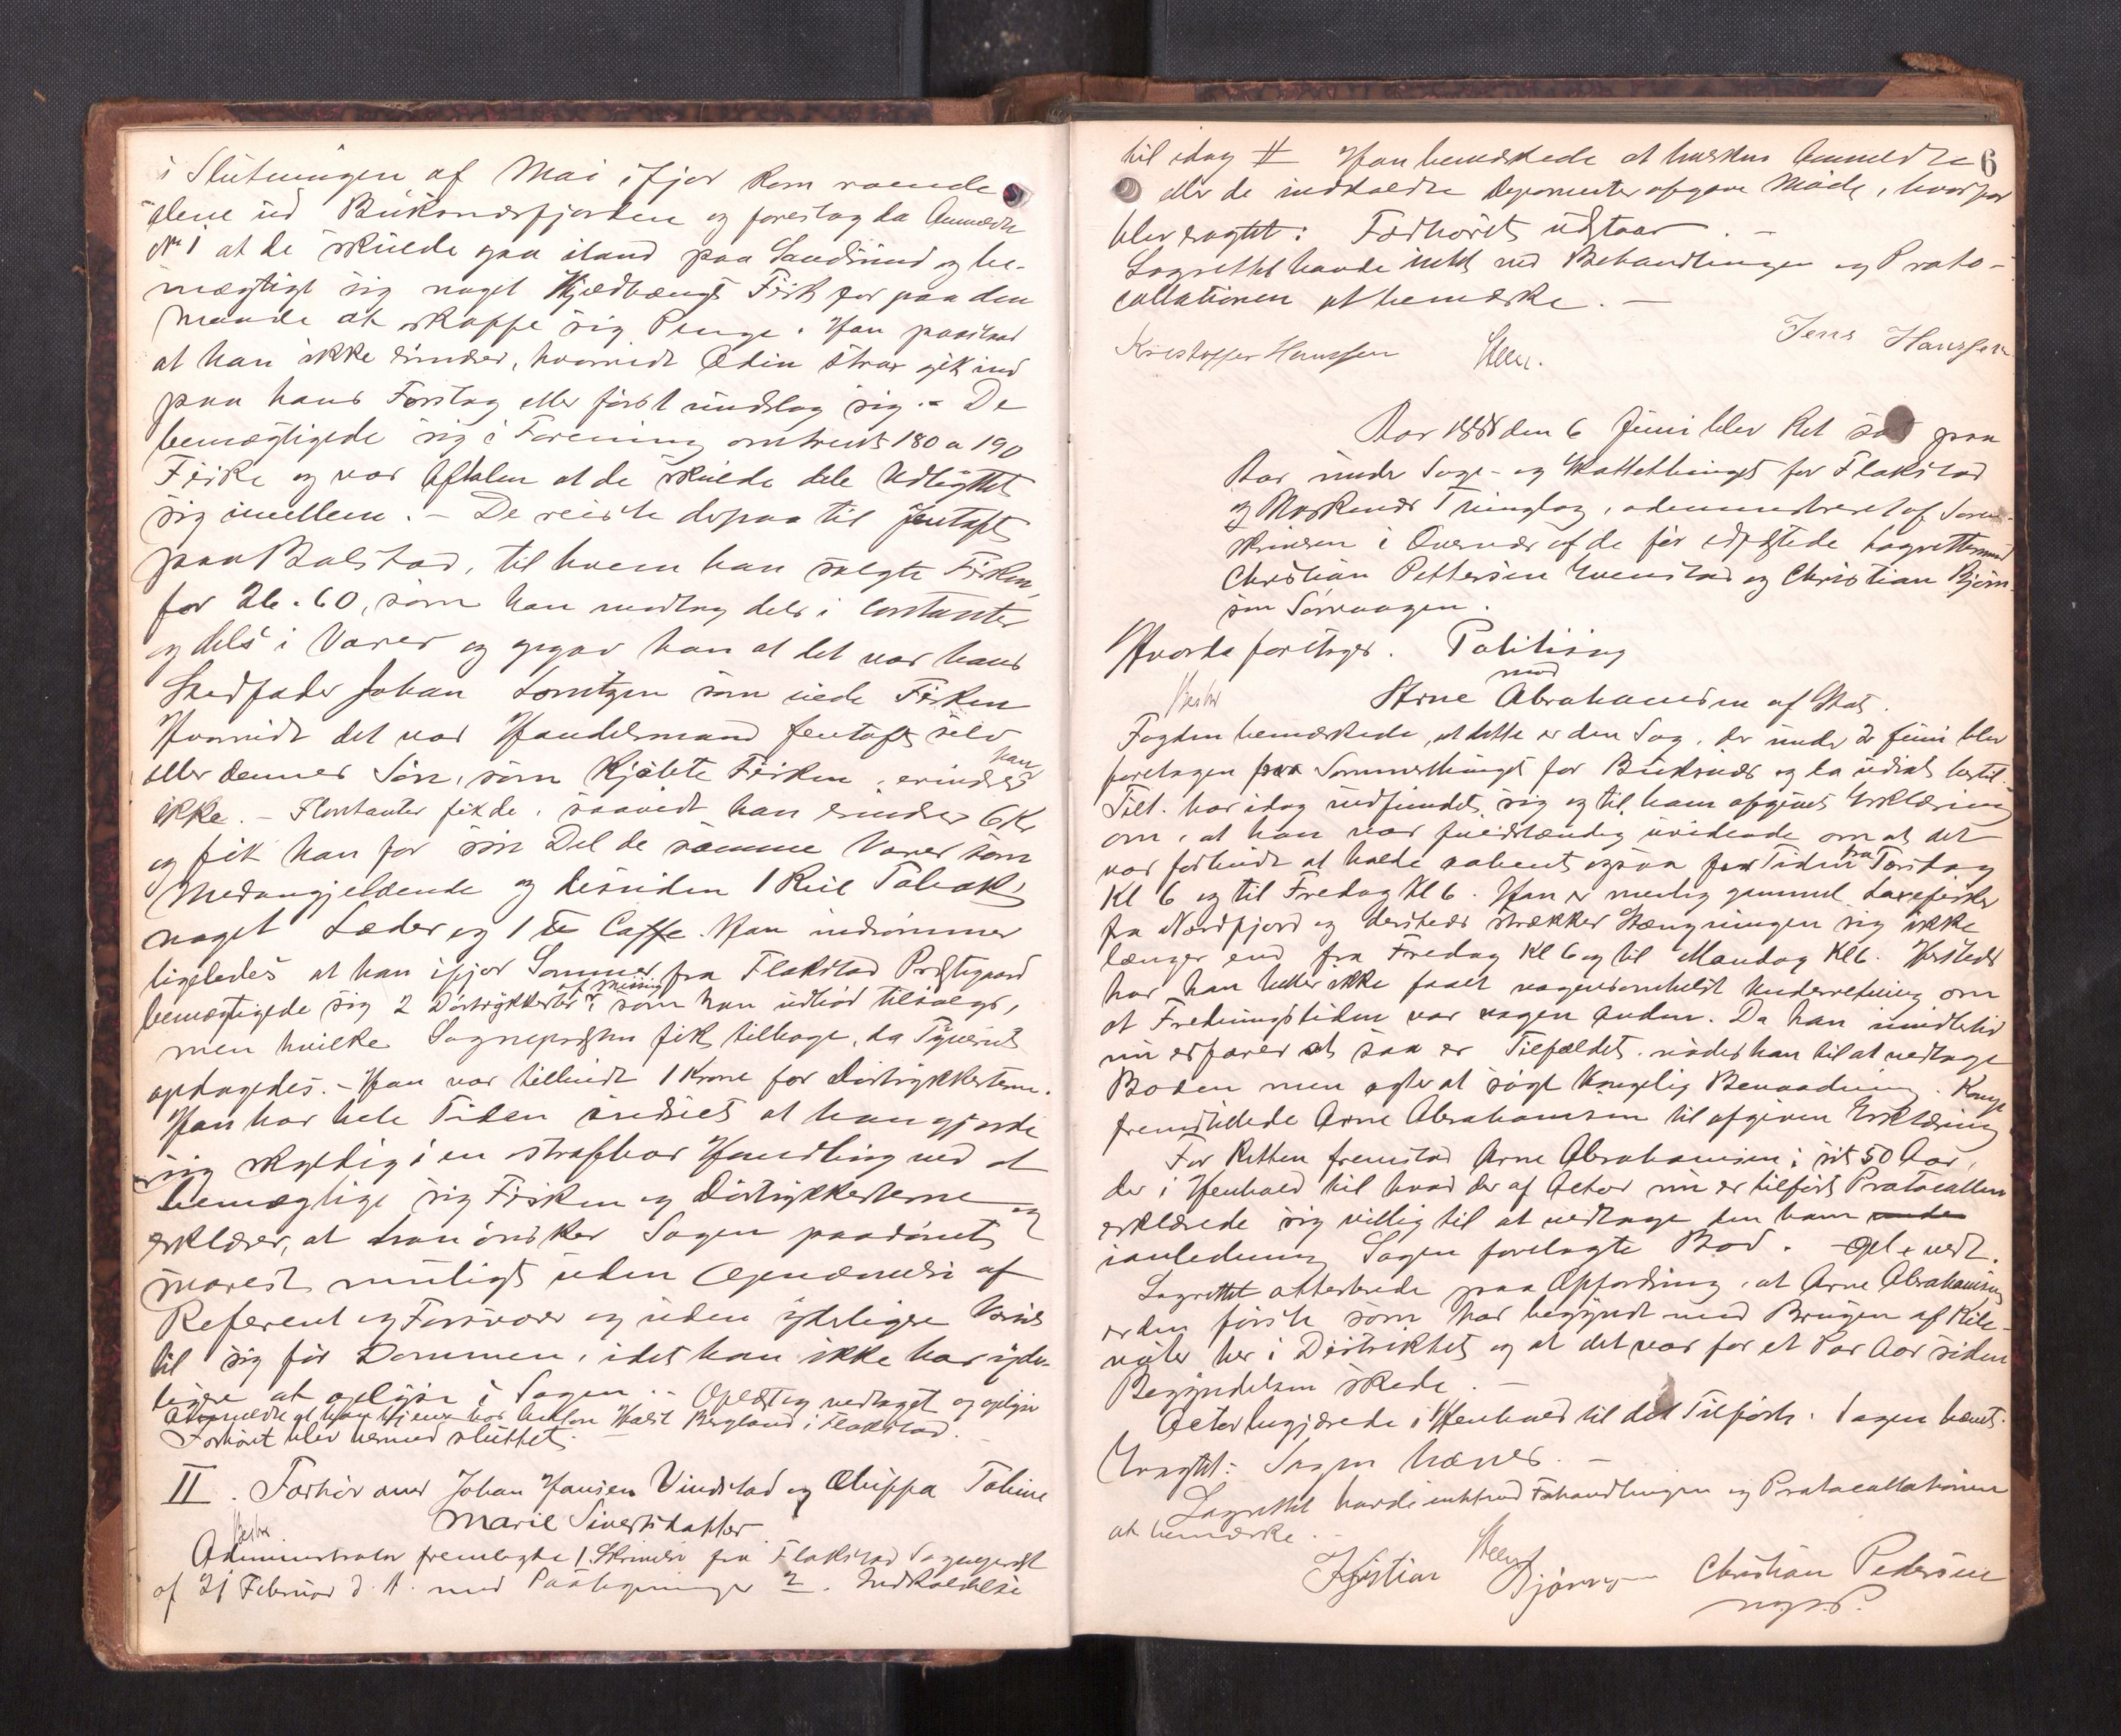 i Slutningen af Mai ifjor kom roende
alene ud Buksnæsfjorden og foreslog da Anmeldte
No 1 at de skulde gaa iland paa Sandsund og be-
mægtige sig noget Hjeldhængt Fisk for paa den
Maade at skaffe sig Penge. Han paastod
at han ikke erindrer, hvorvidt Edin strax gik ind
paa hans Forslag eller først undslog sig. - De
bemægtigede sig i Forening omtrent 180 a 190
Fiske og var Aftalen at de skulde dele Udbyttet
sig imellem. - De reiste derpaa til Jentoft
paa Balstad, til hvem han solgte Fisken
for 26.60, som han modtog dels i Contanter
og dels i Varer og opgav han at det var hans
Stedfader Johan Lorntzen som eiede Fisken
Hvorvidt det var Handelsmand Jentoft selv
eller dennes Søn, som kjøbte Fisken, erindrer han
ikke. - Contanter fik de, saavidt han erindrer 6 Kr
og fik han for sin Del de samme Varer som
Medangjeldende og desuden 1 Rul Tobak,
noget Læder og 1 ℔ Caffe. Han indrømmer
ligeledes at han ifjor Sommer fra Flakstad Præstegaard
bemægtigede sig 2 Dørtrykkerter af Messing, som han udbød tilsalgs,
men hvilke Sognepræsten fik tilbage, da Tyveriet
opdagedes. - Han var tilbudt 1 Krone for Dørtrykkerterne.
Han har hele Tiden indseet at han gjorde
sig skyldig i en strafbar Handling ved at
bemægtige sig Fisken og Dørtrykkerterne og
erklærer, at han ønsker Sagen paadømt
snarest muligt uden Opnævnelse af
Referent og Forsvarer og uden yderligere Varsel
til sig før Dommen, idet han ikke har yder-
ligere at oplyse i Sagen. - Oplæst og vedtaget og oplyste
Anmeldte at han tjener hos Anton Hartvig Bergland i Flakstad. -
Forhøret blev hermed sluttet.
II. Forhør over Johan Hansen Vindstad og Oluffa Tobine
Marie Sivertsdatter
Besr.
Administrator fremlagte 1. Skrivelse fra Flakstad Sognepræst
af 21 Februar d. A. med Paategninger 2. Indkaldelse
6
til idag # Han bemærkede at hverken Anmeldte
eller de indkaldte Deponenter afgave Møde, hvorfor
blev eragtet: Forhøret udstaar. -
Lagrettet havde intet ved Behandlingen og Proto-
collationen at bemærke. -
Kristoffer Hanssen Steen. Jens Hanssen
Aar 1888 den 6 Juni blev Ret sat paa
Aar under Sage- og Skattethinget for Flakstad
og Moskenæs Thinglag, administreret af Soren-
skriveren i Overvær af de før edfæstede Lagrettemænd
Christian Pettersen Evenstad og Christian Bjørn-
son Sørvaagen.
Hvorda foretoges. Politisag
mod
Arne Abrahamsen af Skat.
Besr
Fogden bemærkede, at dette er den Sag, der under 2 Juni blev
foretagen paa Sommerthinget for Buksnæs og da udsat hertil.
Tilt. har idag indfundet sig og til ham afgivet Erklæring
om, at han var fuldstændig uvidende om at det
var forbudt at holde aabent ogsaa for Tiden fra Torsdag
Kl 6 og til Fredag Kl 6. Han er nemlig gammel Laxefisker
fra Nordfjord og dersteds strækker Stængningen sig ikke
længer end fra Fredag Kl 6 og til Mandag Kl 6. Hersteds
har han heller ikke faaet nogensomhelst Underretning om
at Fredningstiden var nogen anden. Da han imidlertid
nu erfarer at saa er Tilfældet, nødes han til at vedtage
Boden men agter at søge Kongelig Benaadning. Komp
fremstillede Arne Abrahamsen til afgiven Erklæring
For Retten fremstod Arne Abrahamsen, sit 50 Aar,
der i Henhold til hvad der af Actor nu er tilført Protocollen
erklærede sig villig til at vedtage den ham
ianledning Sagen forelagte Bod. Opl. & vedt.
Lagrettet attesterede paa Opfordring, at Arne Abrahamsen
er den første som har begyndt med Brugen af Kile-
nøter her i Distriktet og at det var for et Par Aar siden
Begyndelsen skede. -
Actor begjærede i Henhold til det Tilførte, Sagen hævet.
Eragtet: Sagen hæves. -
Lagrettet havde intet ved Forhandlingen og Protocollationen
at bemærke. -
Steen
Kristian Bjørnson Christian Pedersen
m.p.P.